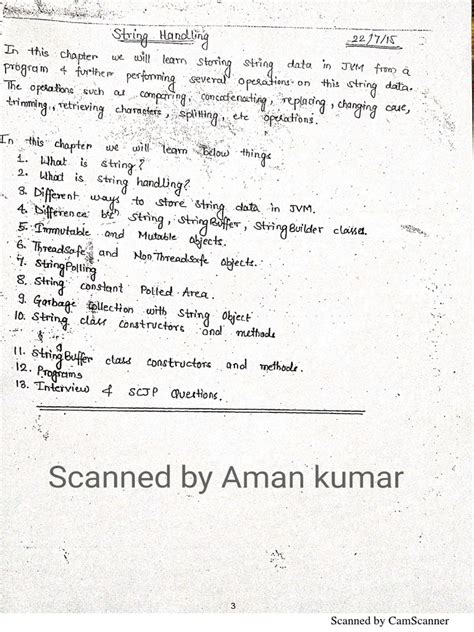 String Handling
22/7/15
In this chapter we will learn storing string data in JVM from a
program & further performing several operations on this string data.
The operations such as comparing, concatenating, replacing, changing case,
trimming, retrieving characters, splitting, etc operations.
In this chapter we will learn below things
1. What is string?
2. What is string handling?
3. Different ways to store string data in JVM.
4. Difference b/n String, StringBuffer, StringBuilder classes.
5. Immutable and Mutable objects.
6. ThreadSafe and NonThreadSafe objects.
7. StringPolling
8. String constant Polled Area.
9. Garbage Collection with String Object
10. String class constructors and methods
11. StringBuffer class constructors and methods.
12. Programs
13. Interview & SCJP Questions.
Scanned by Aman kumar
3
Scanned by CamScanner